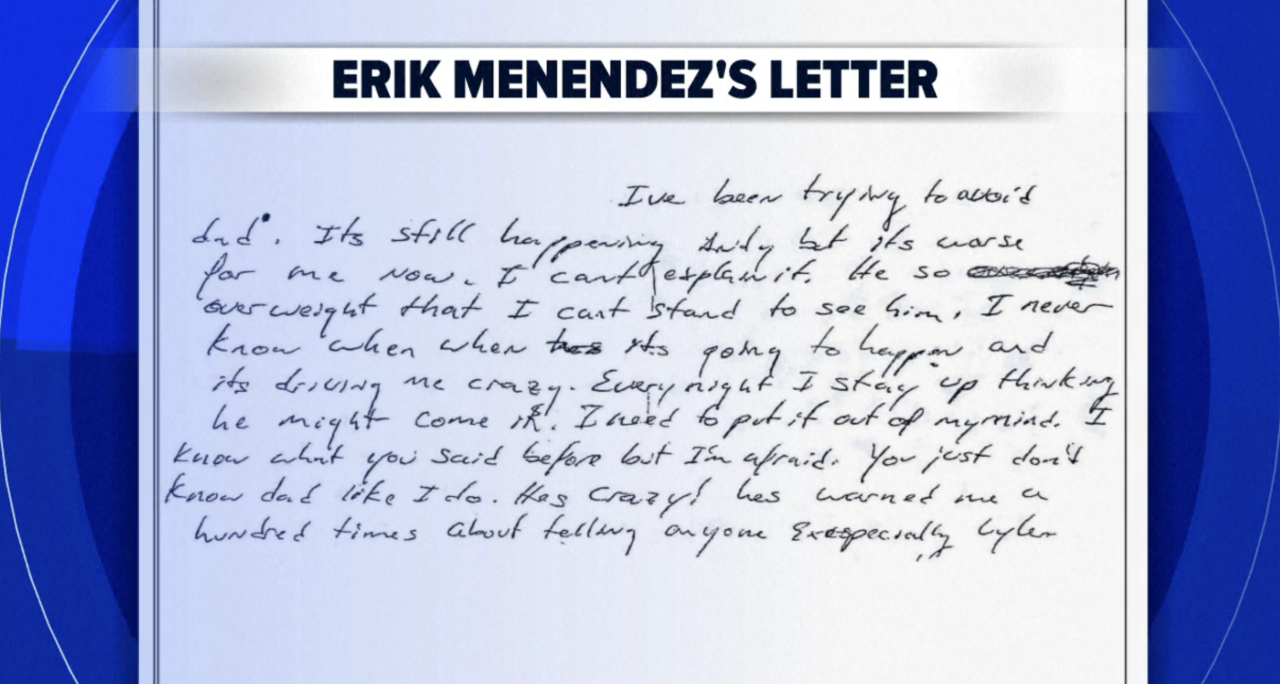 ERIK MENENDEZ'S LETTER
Ive been trying to avoid
dad. Its still happening Andy but its worse
for me now. I cant explain it. He so
overweight that I cant stand to see him. I never
know when when its going to happen and
its driving me crazy. Every night I stay up thinking
he might come in. I need to put it out of my mind. I
know what you said before but I'm afraid. You just don't
know dad like I do. Hes crazy! hes warned me a
hundred times about telling anyone Exespecially Lyle